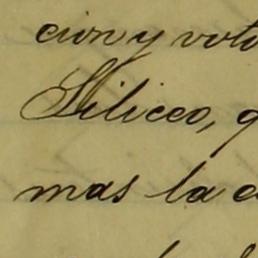 cion y voto
Siliceo, q
mas la c